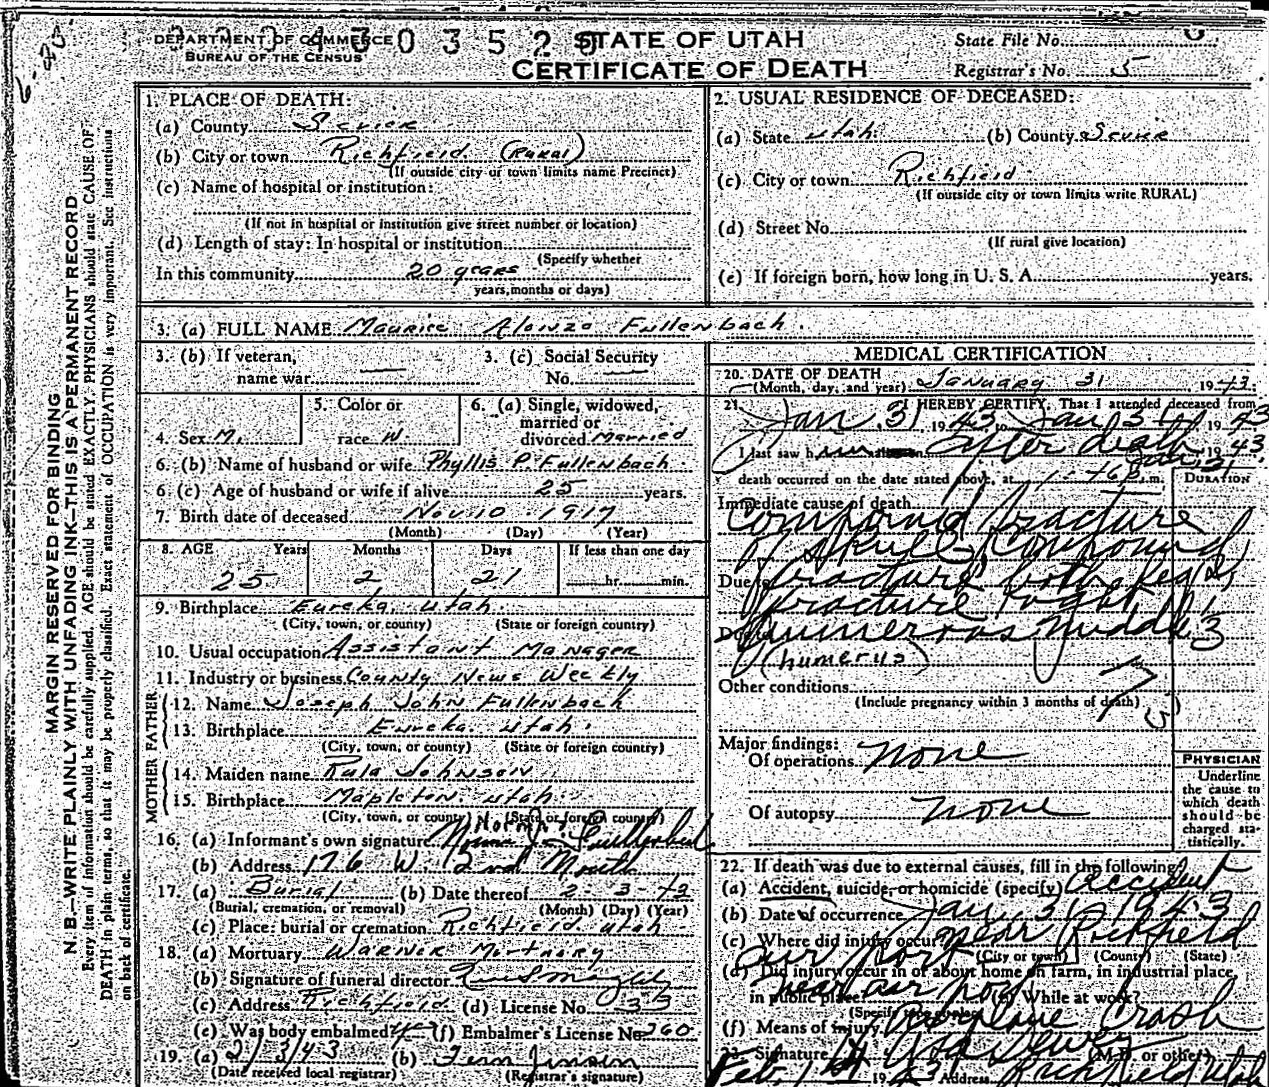 DEPARTMENT OF COMMERCE
BUREAU OF THE CENSUS
STATE OF UTAH
CERTIFICATE OF DEATH
State File No.
Registrar's No. 5
MARGIN RESERVED FOR BINDING
N. B.—WRITE PLAINLY WITH UNFADING INK—THIS IS A PERMANENT RECORD
Every item of information should be carefully supplied. AGE should be stated EXACTLY. PHYSICIANS should state CAUSE OF
DEATH in plain terms, so that it may be properly classified. Exact statement of OCCUPATION is very important. See instructions
on back of certificate.
1. PLACE OF DEATH:
(a) County Sevier
(b) City or town Richfield (Rural)
(If outside city or town limits name Precinct)
(c) Name of hospital or institution:
(If not in hospital or institution give street number or location)
(d) Length of stay: In hospital or institution
(Specify whether
In this community 20 years
years, months or days)
2. USUAL RESIDENCE OF DECEASED:
(a) State Utah (b) County Sevier
(c) City or town Richfield
(If outside city or town limits write RURAL)
(d) Street No.
(If rural give location)
(e) If foreign born, how long in U. S. A. years.
3. (a) FULL NAME Maurice Alonzo Fullenbach.
3. (b) If veteran, name war —
3. (c) Social Security No. —
4. Sex M.
5. Color or race W.
6. (a) Single, widowed, married or divorced Married
6. (b) Name of husband or wife Phyllis P. Fullenbach
6. (c) Age of husband or wife if alive 25 years.
7. Birth date of deceased Nov. 10 1917
(Month) (Day) (Year)
8. AGE Years Months Days If less than one day
25 2 21 hr. min.
9. Birthplace Eureka, Utah.
(City, town, or county) (State or foreign country)
10. Usual occupation Assistant Manager
11. Industry or business County News Weekly
FATHER
12. Name Joseph John Fullenbach
13. Birthplace Eureka, Utah.
(City, town, or county) (State or foreign country)
MOTHER
14. Maiden name Rula Johnson
15. Birthplace Mapleton, Utah.
(City, town, or county) (State or foreign country)
16. (a) Informant's own signature
(b) Address 176 W. 2nd North
17. (a) Burial (b) Date thereof 2-3-43
(Burial, cremation, or removal) (Month) (Day) (Year)
(c) Place: burial or cremation Richfield, Utah
18. (a) Mortuary Warner Mortuary
(b) Signature of funeral director
(c) Address Richfield (d) License No. 33
(e) Was body embalmed? (f) Embalmer's License No. 260
19. (a) 2/3/43 (b) Fern Jensen
(Date received local registrar) (Registrar's signature)
MEDICAL CERTIFICATION
20. DATE OF DEATH
(Month, day, and year) January 31, 1943.
21. I HEREBY CERTIFY, That I attended deceased from
Jan. 31, 1943, to Jan 31, 1943
I last saw him after death Jan. 31 1943
death occurred on the date stated above, at m.
DURATION
Immediate cause of death
Compound fracture
of skull, Compound
Due to fracture both legs,
fracture right
Due to humerous middle 1/3
(humerus)
Other conditions
(Include pregnancy within 3 months of death)
Major findings:
Of operations none
Of autopsy none
PHYSICIAN
Underline
the cause to
which death
should be
charged sta-
tistically.
22. If death was due to external causes, fill in the following:
(a) Accident, suicide, or homicide (specify) accident
(b) Date of occurrence Jan. 31, 1943
(c) Where did injury occur? near Richfield
air port (City or town) (County) (State)
(d) Did injury occur in or about home on farm, in industrial place,
in public place? near air port While at work?
(f) Means of injury Airplane Crash
23. Signature (M.D. or other)
Feb. 1st 1943 Address Richfield Utah